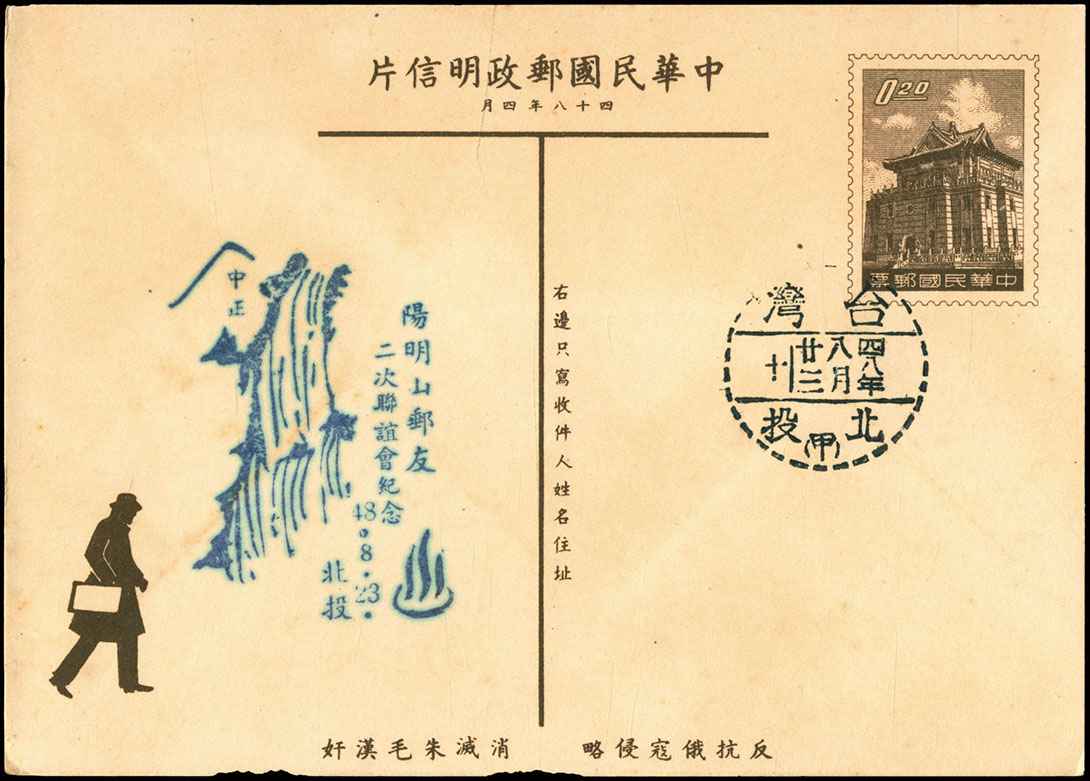 中華民國郵政明信片
四十八年四月
0.20
中華民國郵票
台灣
四八年
八月
廿三
十
北投
(甲)
右邊只寫收件人姓名住址
中正
陽明山郵友
二次聯誼會紀念
48.8.23.
北投
反抗俄寇侵略
消滅朱毛漢奸